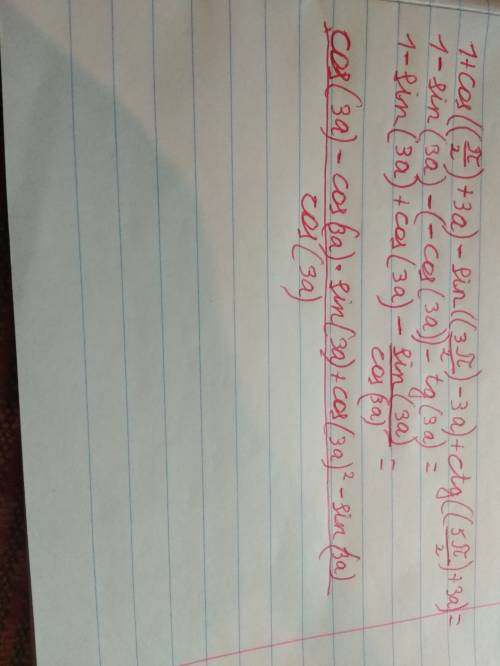 1+cos((π/2)+3a)-sin((3π/2)-3a)+ctg((5π/2)+3a)=
1-sin(3a)-(-cos(3a))-tg(3a)=
1-sin(3a)+cos(3a)-sin(3a)/cos(3a)=
cos(3a)-cos(3a)·sin(3a)+cos(3a)²-sin(3a)
cos(3a)